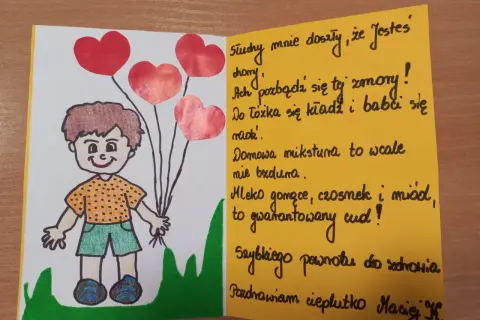 Słuchy mnie doszły, że Jesteś
chory,
Ach pozbądź się tej zmory!
Do łóżka się kładź i babci się
radź.
Domowa mikstura to wcale
nie bzdura.
Mleko gorące, czosnek i miód,
to gwarantowany cud!
Szybkiego powrotu do zdrowia
Pozdrawiam cieplutko Maciej K